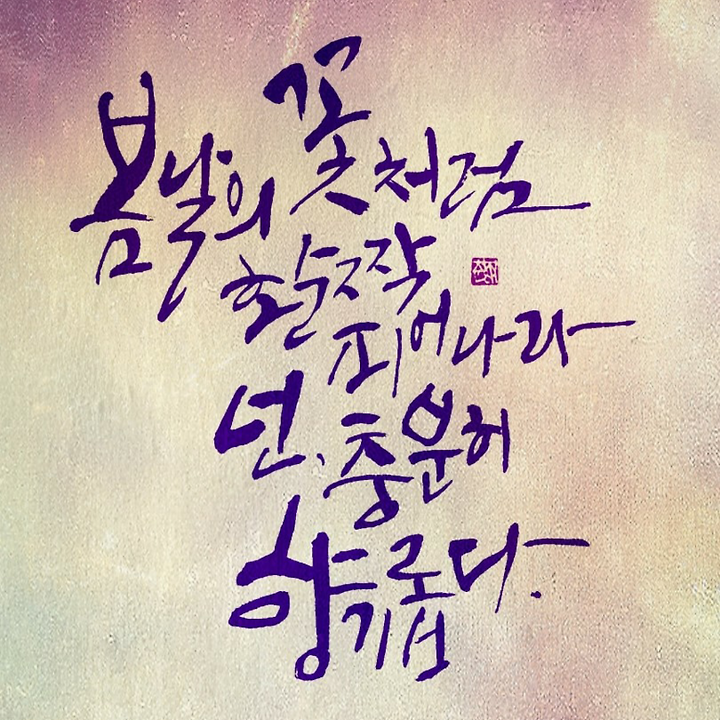 봄날의 꽃처럼
활짝
피어나라
넌, 충분히
향기롭다.